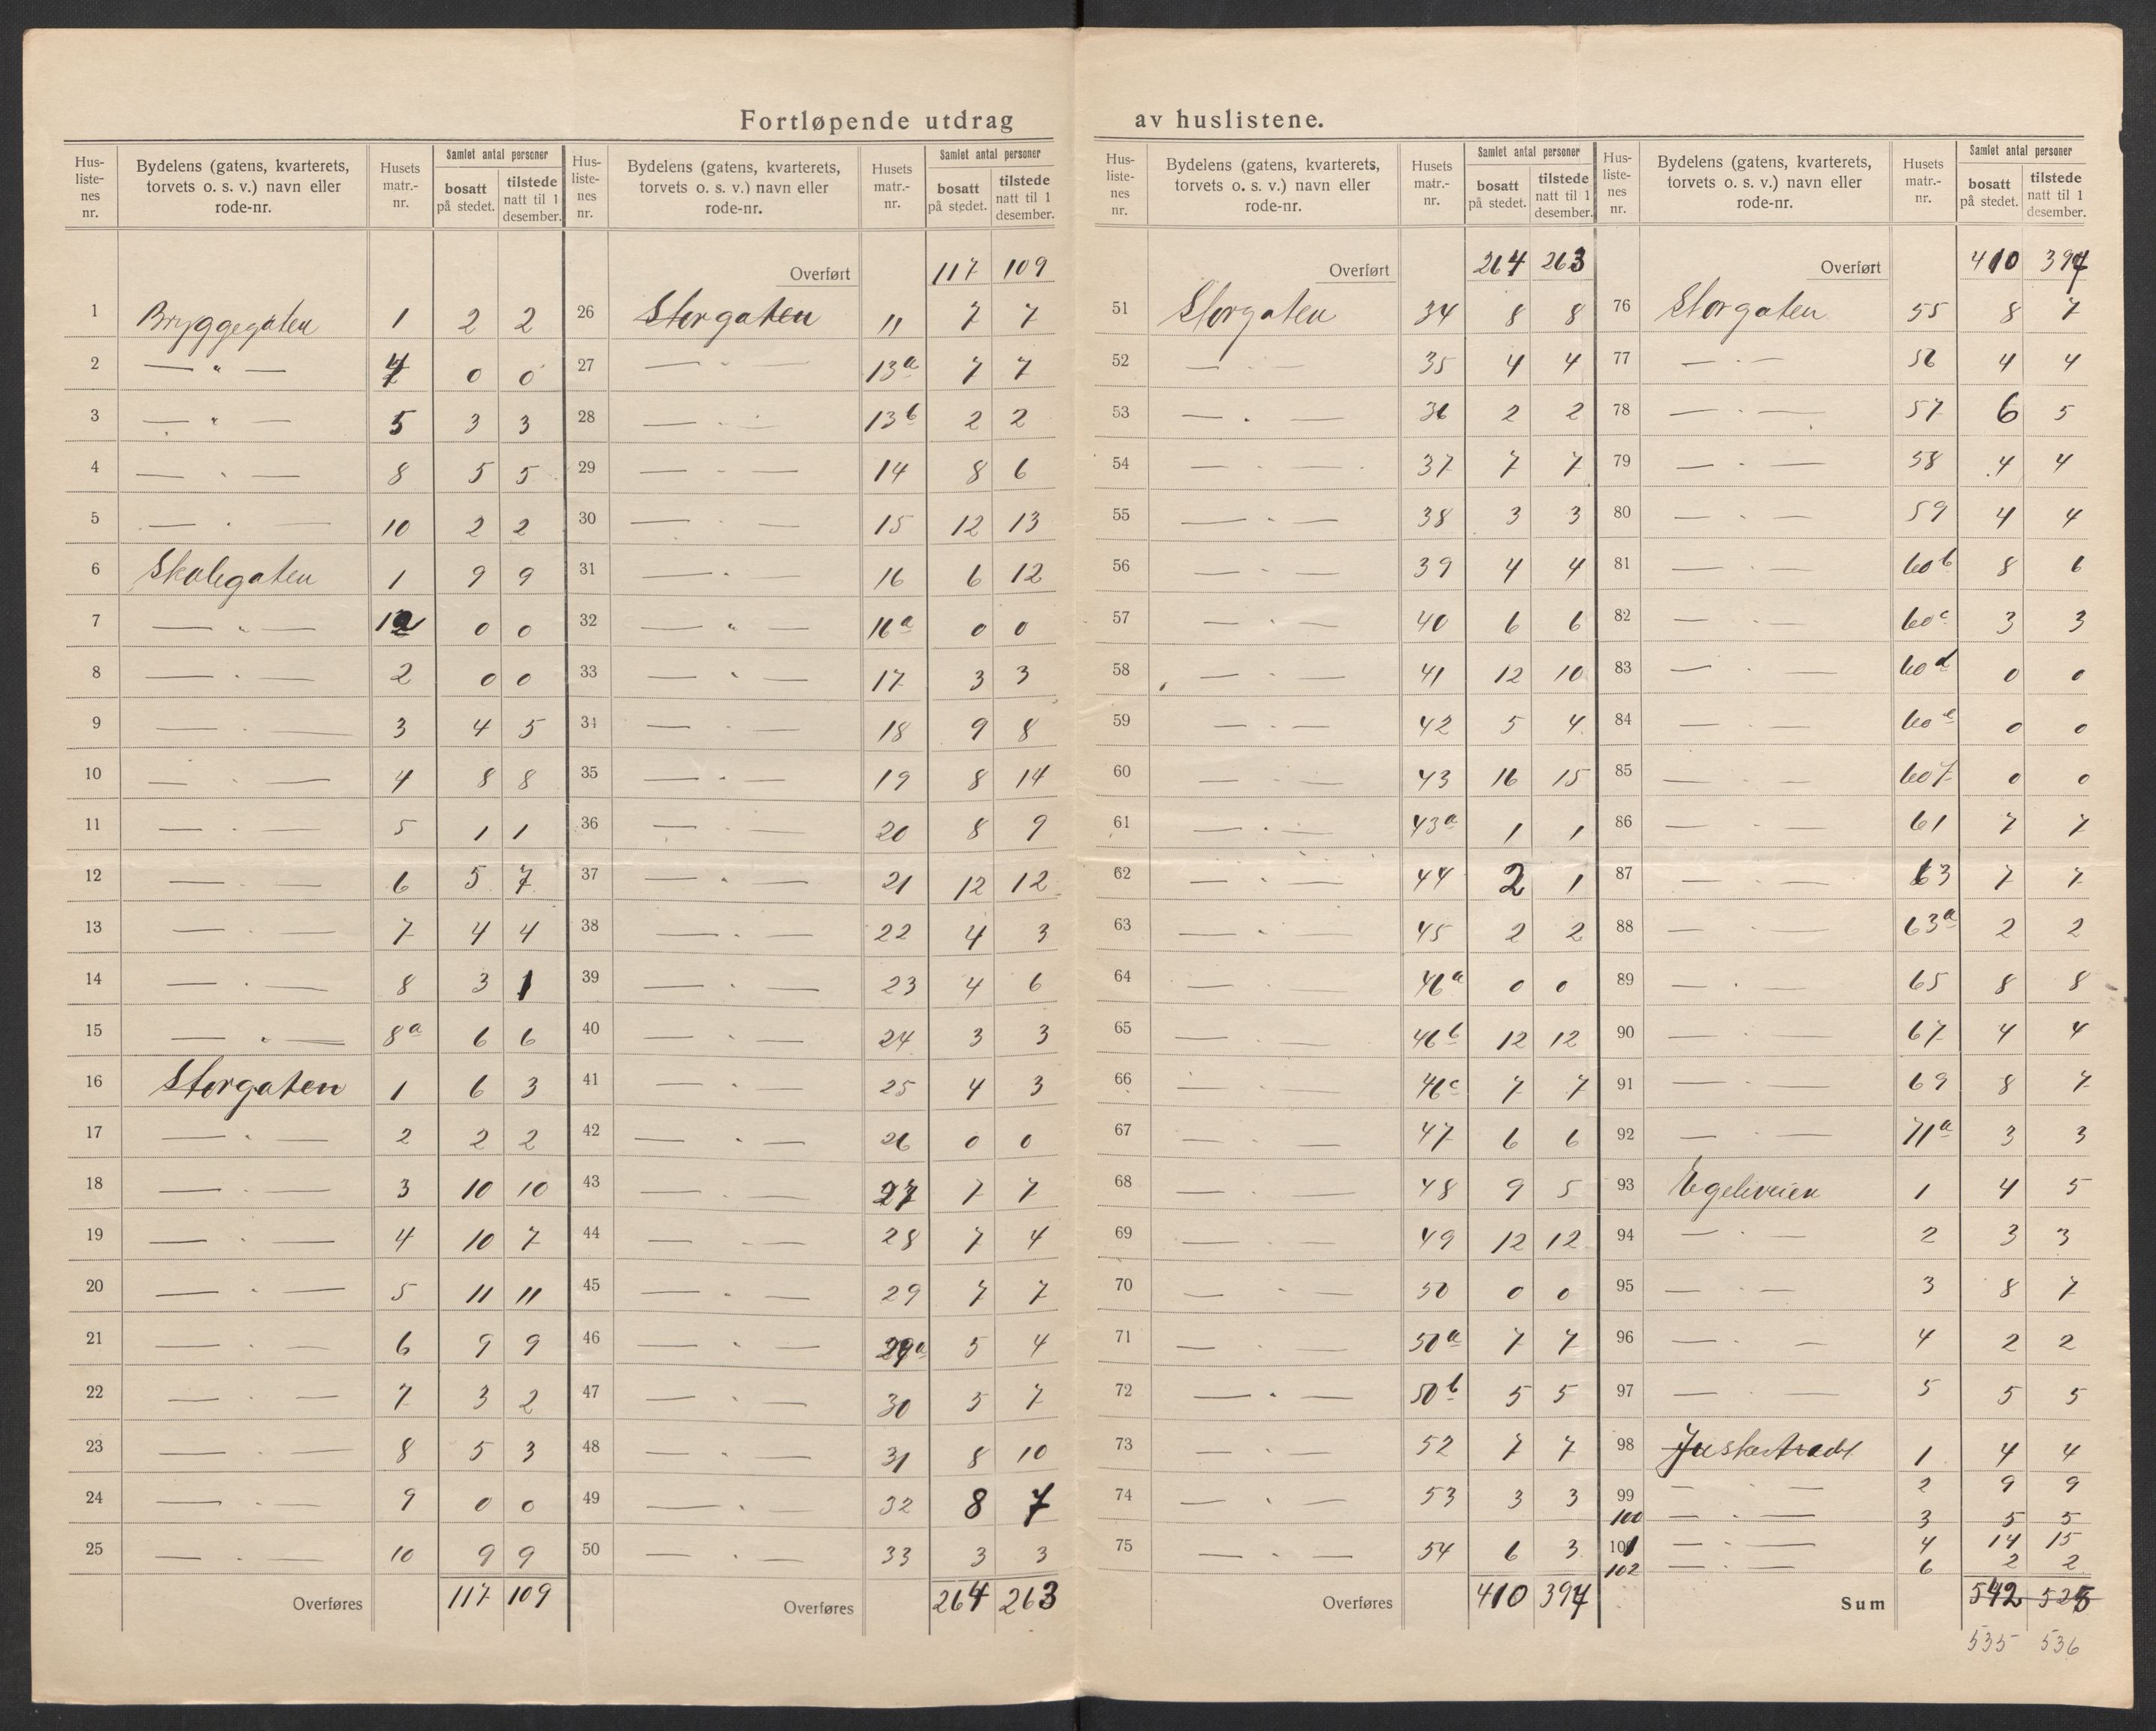 Fortløpende utdrag av huslistene.
Hus-liste-nes nr. Bydelens (gatens, kvarterets, torvets o. s. v.) navn eller rode-nr. Husets matr.-nr. Samlet antal personer bosatt på stedet. tilstede natt til 1 desember.
1 Bryggegaten 1 2 2
2 — " — 4 0 0
3 — " — 5 3 3
4 — " — 8 5 5
5 — " — 10 2 2
6 Skolegaten 1 9 9
7 — " — 1a 0 0
8 — " — 2 0 0
9 — " — 3 4 5
10 — " — 4 8 8
11 — " — 5 1 1
12 — " — 6 5 7
13 — " — 7 4 4
14 — " — 8 3 1
15 — " — 8a 6 6
16 Storgaten 1 6 3
17 — " — 2 2 2
18 — " — 3 10 10
19 — " — 4 10 7
20 — " — 5 11 11
21 — " — 6 9 9
22 — " — 7 3 2
23 — " — 8 5 3
24 — " — 9 0 0
25 — " — 10 9 9
Overføres 117 109
Hus-liste-nes nr. Bydelens (gatens, kvarterets, torvets o. s. v.) navn eller rode-nr. Husets matr.-nr. Samlet antal personer bosatt på stedet. tilstede natt til 1 desember.
Overført 117 109
26 Storgaten 11 7 7
27 — " — 13a 7 7
28 — " — 13b 2 2
29 — " — 14 8 6
30 — " — 15 12 13
31 — " — 16 6 12
32 — " — 16a 0 0
33 — " — 17 3 3
34 — " — 18 9 8
35 — " — 19 8 14
36 — " — 20 8 9
37 — " — 21 12 12
38 — " — 22 4 3
39 — " — 23 4 6
40 — " — 24 3 3
41 — " — 25 4 3
42 — " — 26 0 0
43 — " — 27 7 7
44 — " — 28 7 4
45 — " — 29 7 7
46 — " — 29a 5 4
47 — " — 30 5 7
48 — " — 31 8 10
49 — " — 32 8 7
50 — " — 33 3 3
Overføres 264 263
Hus-liste-nes nr. Bydelens (gatens, kvarterets, torvets o. s. v.) navn eller rode-nr. Husets matr.-nr. Samlet antal personer bosatt på stedet. tilstede natt til 1 desember.
Overført 264 263
51 Storgaten 34 8 8
52 — " — 35 4 4
53 — " — 36 2 2
54 — " — 37 7 7
55 — " — 38 3 3
56 — " — 39 4 4
57 — " — 40 6 6
58 — " — 41 12 10
59 — " — 42 5 4
60 — " — 43 16 15
61 — " — 43a 1 1
62 — " — 44 2 1
63 — " — 45 2 2
64 — " — 46a 0 0
65 — " — 46b 12 12
66 — " — 46c 7 7
67 — " — 47 6 6
68 — " — 48 9 5
69 — " — 49 12 12
70 — " — 50 0 0
71 — " — 50a 7 7
72 — " — 50b 5 5
73 — " — 52 7 7
74 — " — 53 3 3
75 — " — 54 6 3
Overføres 410 394
Hus-liste-nes nr. Bydelens (gatens, kvarterets, torvets o. s. v.) navn eller rode-nr. Husets matr.-nr. Samlet antal personer bosatt på stedet. tilstede natt til 1 desember.
Overført 410 394
76 Storgaten 55 8 7
77 — " — 56 4 4
78 — " — 57 6 5
79 — " — 58 4 4
80 — " — 59 4 4
81 — " — 60b 8 6
82 — " — 60c 3 3
83 — " — 60d 0 0
84 — " — 60e 0 0
85 — " — 60f 0 0
86 — " — 61 7 7
87 — " — 63 7 7
88 — " — 63a 2 2
89 — " — 65 8 8
90 — " — 67 4 4
91 — " — 69 8 7
92 — " — 71a 3 3
93 Egeliveien 1 4 5
94 — " — 2 3 3
95 — " — 3 8 7
96 — " — 4 2 2
97 — " — 5 5 5
98 1 4 4
99 — " — 2 9 9
100 — " — 3 5 5
101 — " — 4 14 15
102 — " — 6 2 2
Sum 542 525
535 536